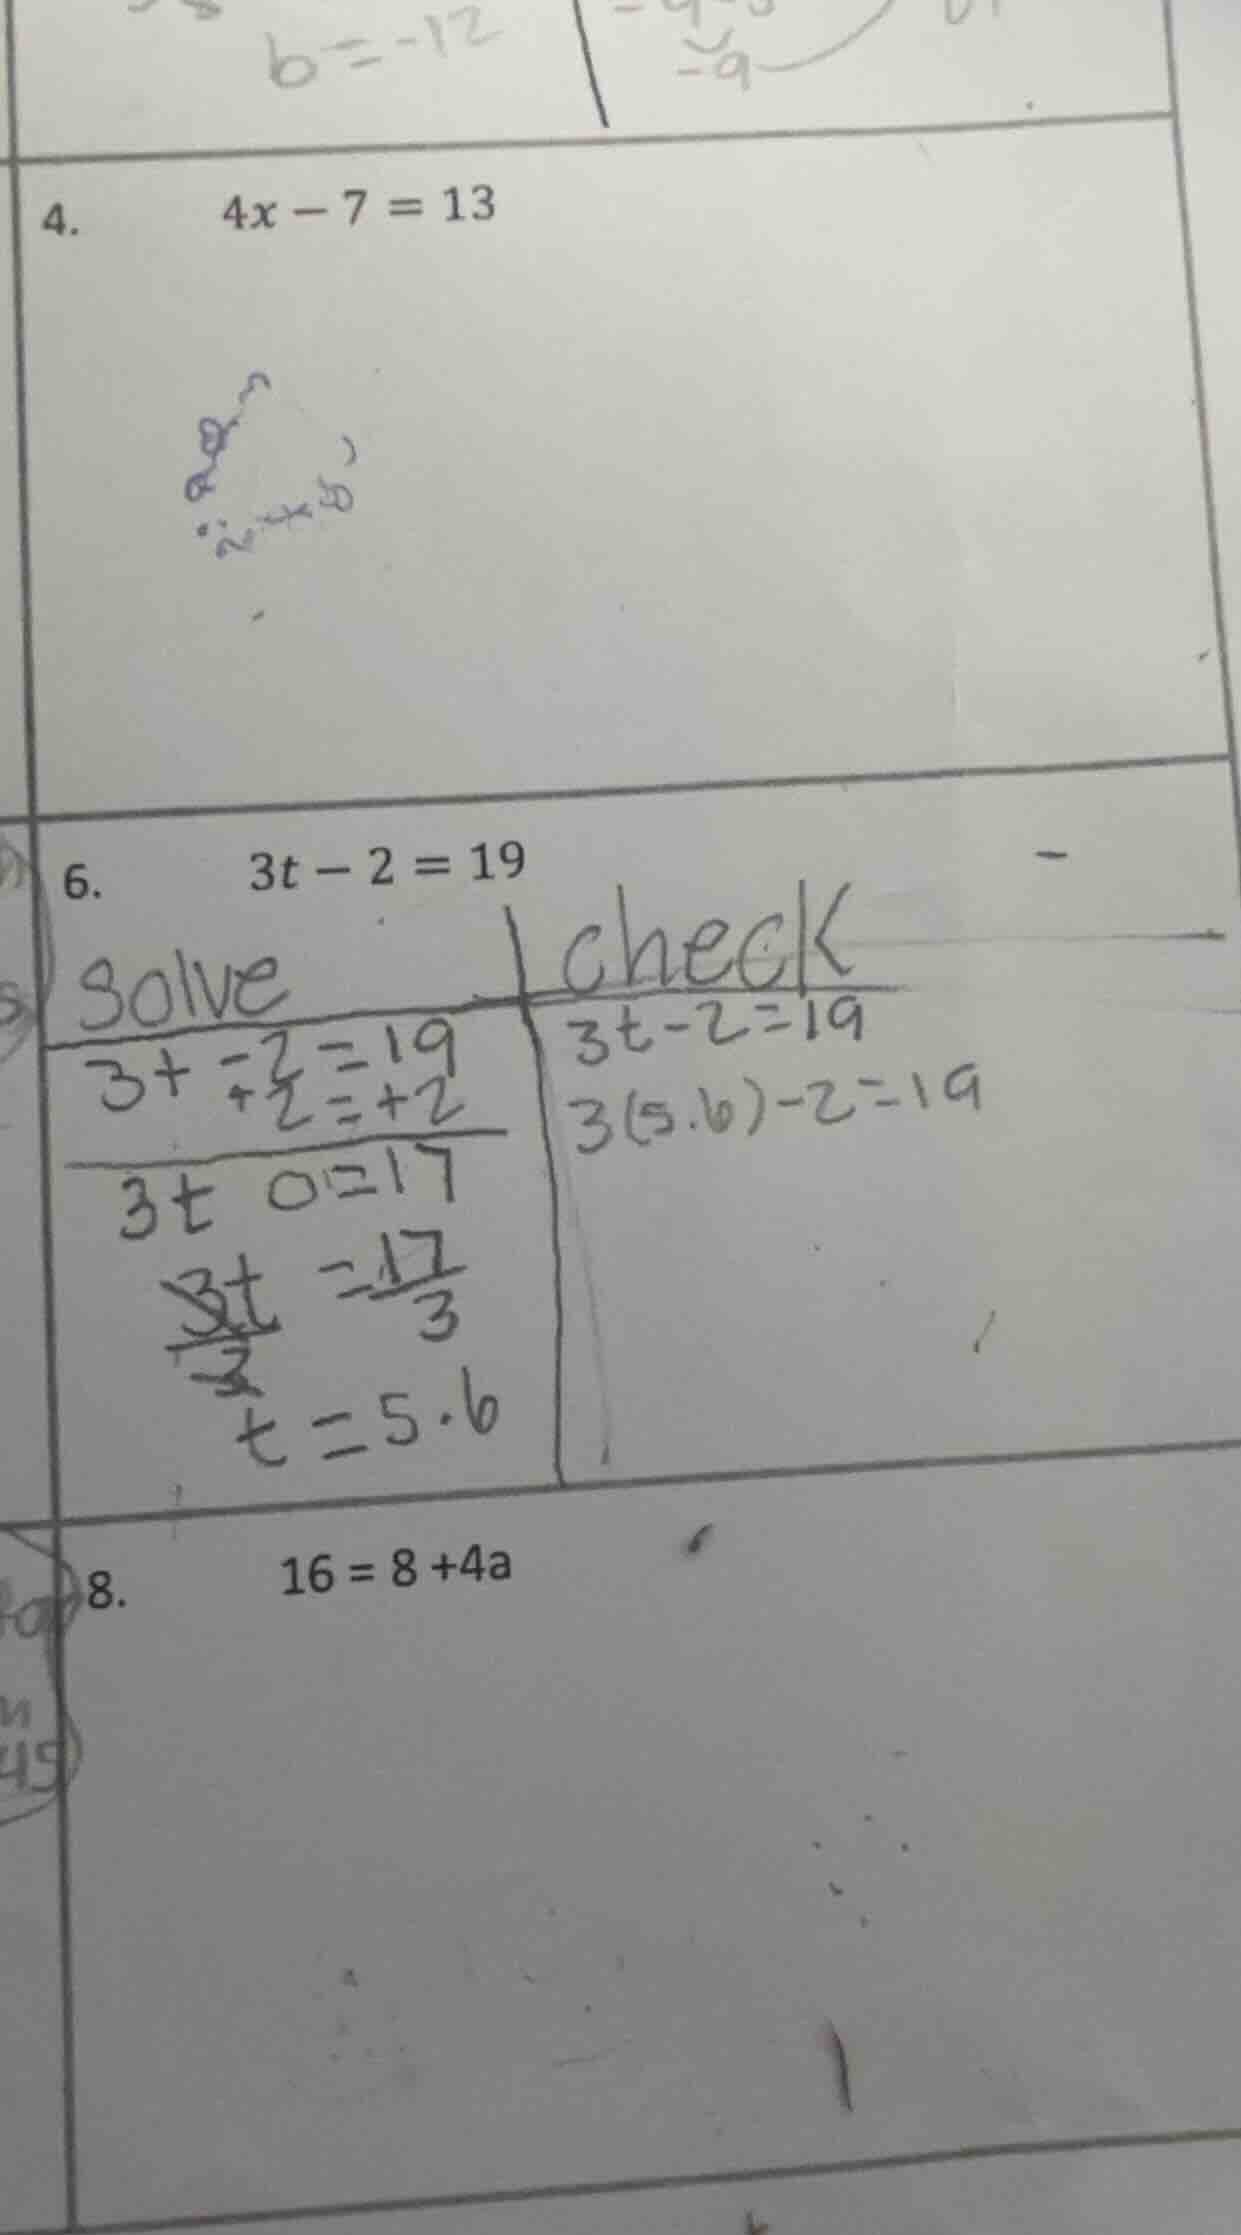 b = -12
-9
4. 4x − 7 = 13
6. 3t − 2 = 19
solve
check
3t - 2 = 19
+2 = +2
3t 0 = 17
3t = 17
3 3
t = 5.6
3t - 2 = 19
3(5.6) - 2 = 19
8. 16 = 8 +4a
45